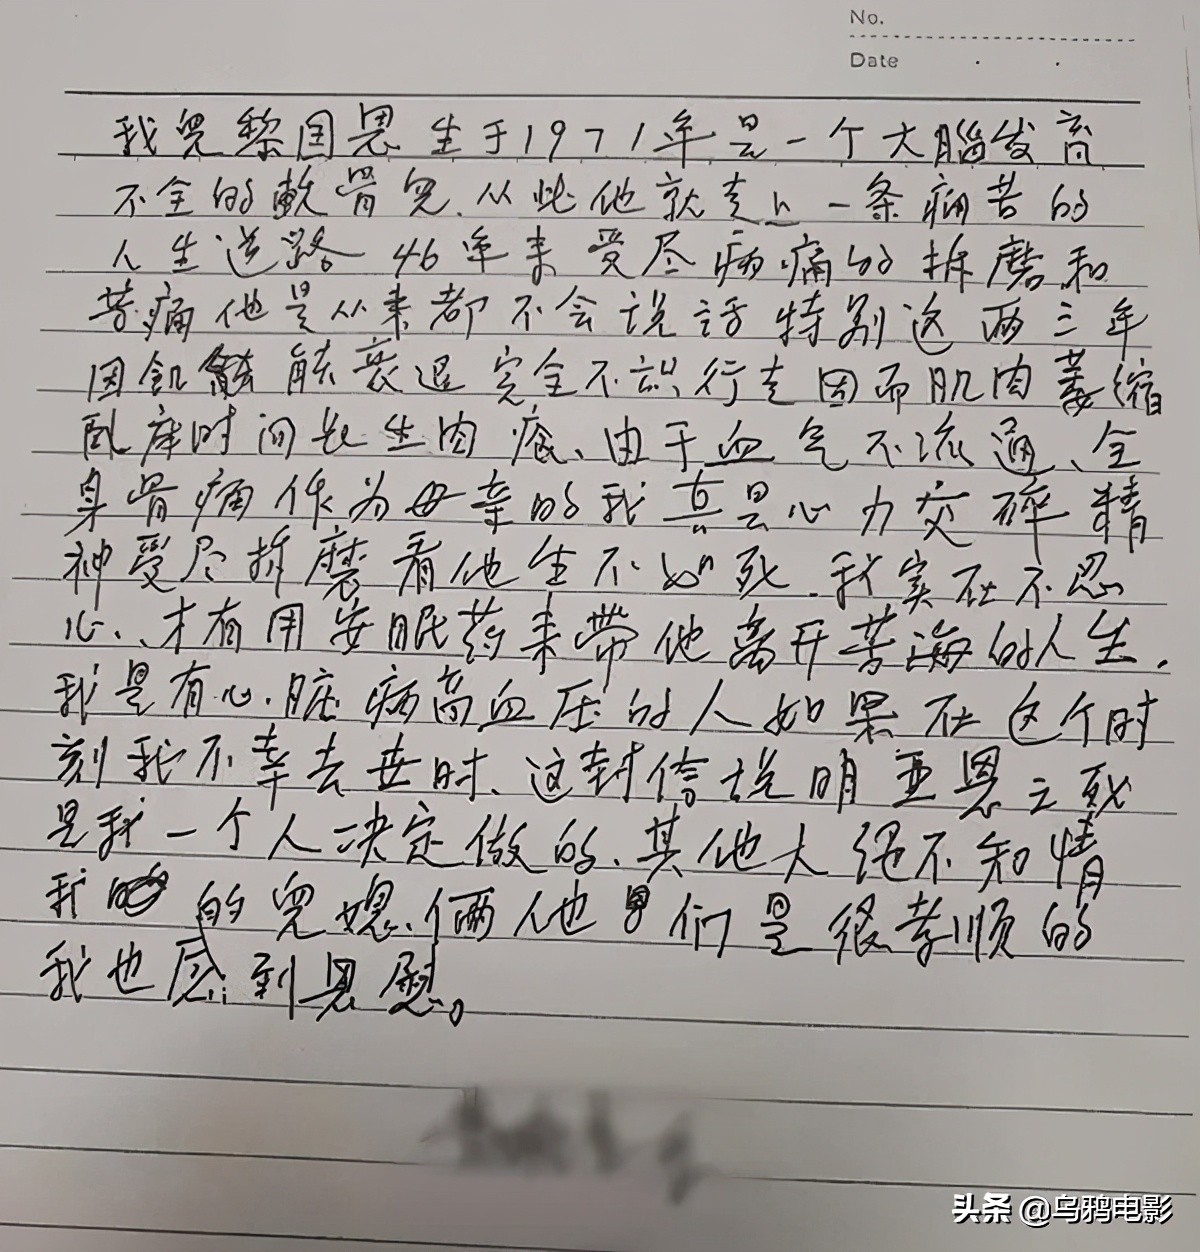 No.
Date
我兒黎国恩生于1971年是一个大腦发育
不全的軟骨兒、从此他就走上一条痛苦的
人生道路 46年来受尽病痛的折磨和
苦痛他是从来都不会说话特别这两三年
因飢 能衰退完全不識行走因而肌肉萎缩
卧床时间长生肉疮、由于血气不流通、全
身骨痛作为母亲的我真是心力交碎精
神受尽折磨看他生不如死.我实在不忍
心、才有用安眠药来带他离开苦海的人生.
我是有心.脏病高血压的人如果在这个时
刻我不幸去世时、这封信说明亚恩之死
是我一个人决定做的、其他人绝不知情
我 的兒媳、俩他 们是很孝顺的
我也感到恩慰。
头条 @乌鸦电影